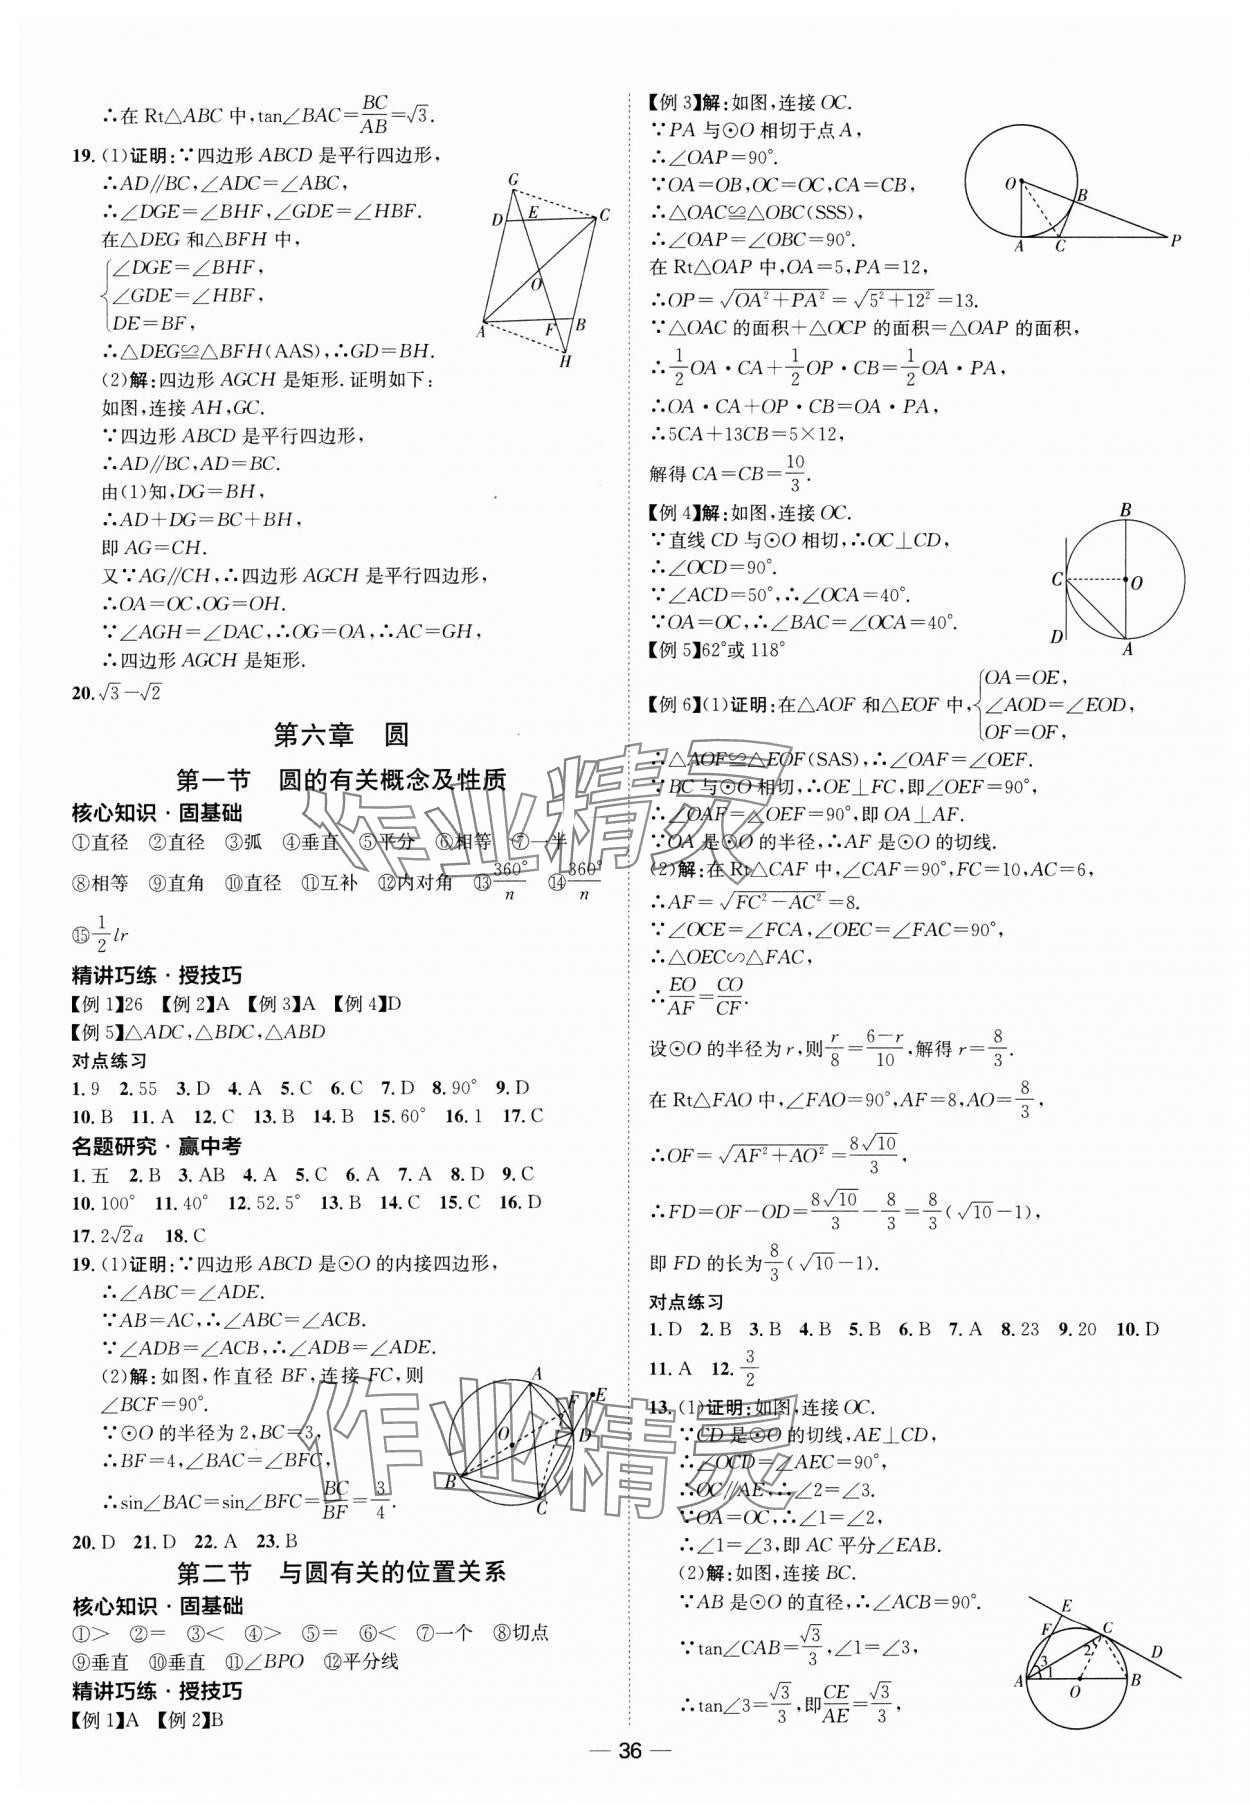 ∴在 Rt△ABC 中,tan∠BAC=BC/AB=√3.
19.(1)证明:∵四边形 ABCD 是平行四边形,
∴AD∥BC,∠ADC=∠ABC,
∴∠DGE=∠BHF,∠GDE=∠HBF.
在△DEG 和△BFH 中,
{∠DGE=∠BHF,
∠GDE=∠HBF,
DE=BF,
∴△DEG≌△BFH(AAS),∴GD=BH.
(2)解:四边形 AGCH 是矩形.证明如下:
如图,连接 AH,GC.
∵四边形 ABCD 是平行四边形,
∴AD∥BC,AD=BC.
由(1)知,DG=BH,
∴AD+DG=BC+BH,
即 AG=CH.
又∵AG∥CH,∴四边形 AGCH 是平行四边形,
∴OA=OC,OG=OH.
∵∠AGH=∠DAC,∴OG=OA,∴AC=GH,
∴四边形 AGCH 是矩形.
G
D E C
O
A F B
H
20.√3-√2
第六章 圆
第一节 圆的有关概念及性质
核心知识·固基础
①直径 ②直径 ③弧 ④垂直 ⑤平分 ⑥相等 ⑦一半
⑧相等 ⑨直角 ⑩直径 ⑪互补 ⑫内对角 ⑬360°/n ⑭360°/n
⑮1/2 lr
精讲巧练·授技巧
【例 1】26 【例 2】A 【例 3】A 【例 4】D
【例 5】△ADC,△BDC,△ABD
对点练习
1.9 2.55 3.D 4.A 5.C 6.C 7.D 8.90° 9.D
10.B 11.A 12.C 13.B 14.B 15.60° 16.1 17.C
名题研究·赢中考
1.五 2.B 3.AB 4.A 5.C 6.A 7.A 8.D 9.C
10.100° 11.40° 12.52.5° 13.B 14.C 15.C 16.D
17.2√2a 18.C
19.(1)证明:∵四边形 ABCD 是⊙O 的内接四边形,
∴∠ABC=∠ADE.
∵AB=AC,∴∠ABC=∠ACB.
∵∠ADB=∠ACB,∴∠ADB=∠ADE.
(2)解:如图,作直径 BF,连接 FC,则
∠BCF=90°.
∵⊙O 的半径为 2,BC=3,
∴BF=4,∠BAC=∠BFC,
∴sin∠BAC=sin∠BFC=BC/BF=3/4.
A
F E
O D
B
C
20.D 21.D 22.A 23.B
第二节 与圆有关的位置关系
核心知识·固基础
①> ②= ③< ④> ⑤= ⑥< ⑦一个 ⑧切点
⑨垂直 ⑩垂直 ⑪∠BPO ⑫平分线
精讲巧练·授技巧
【例 1】A 【例 2】B
【例 3】解:如图,连接 OC.
∵PA 与⊙O 相切于点 A,
∴∠OAP=90°.
∵OA=OB,OC=OC,CA=CB,
∴△OAC≌△OBC(SSS),
∴∠OAP=∠OBC=90°.
在 Rt△OAP 中,OA=5,PA=12,
∴OP=√(OA²+PA²)=√(5²+12²)=13.
∵△OAC 的面积+△OCP 的面积=△OAP 的面积,
∴1/2 OA·CA+1/2 OP·CB=1/2 OA·PA,
∴OA·CA+OP·CB=OA·PA,
∴5CA+13CB=5×12,
解得 CA=CB=10/3.
O
B
A C P
【例 4】解:如图,连接 OC.
∵直线 CD 与⊙O 相切,∴OC⊥CD,
∴∠OCD=90°.
∵∠ACD=50°,∴∠OCA=40°.
∵OA=OC,∴∠BAC=∠OCA=40°.
B
C O
D A
【例 5】62°或 118°
【例 6】(1)证明:在△AOF 和△EOF 中,{OA=OE,
∠AOD=∠EOD,
OF=OF,
∴△AOF≌△EOF(SAS),∴∠OAF=∠OEF.
∵BC 与⊙O 相切,∴OE⊥FC,即∠OEF=90°,
∴∠OAF=∠OEF=90°,即 OA⊥AF.
∵OA 是⊙O 的半径,∴AF 是⊙O 的切线.
(2)解:在 Rt△CAF 中,∠CAF=90°,FC=10,AC=6,
∴AF=√(FC²-AC²)=8.
∵∠OCE=∠FCA,∠OEC=∠FAC=90°,
∴△OEC∽△FAC,
∴EO/AF=CO/CF.
设⊙O 的半径为 r,则r/8=(6-r)/10,解得 r=8/3.
在 Rt△FAO 中,∠FAO=90°,AF=8,AO=8/3,
∴OF=√(AF²+AO²)=8√10/3,
∴FD=OF-OD=8√10/3-8/3=8/3(√10-1),
即 FD 的长为8/3(√10-1).
对点练习
1.D 2.B 3.B 4.B 5.B 6.B 7.A 8.23 9.20 10.D
11.A 12.3/2
13.(1)证明:如图,连接 OC.
∵CD 是⊙O 的切线,AE⊥CD,
∴∠OCD=∠AEC=90°,
∴OC∥AE,∴∠2=∠3.
∵OA=OC,∴∠1=∠2,
∴∠1=∠3,即 AC 平分∠EAB.
(2)解:如图,连接 BC.
∵AB 是⊙O 的直径,∴∠ACB=90°.
∵tan∠CAB=√3/3,∠1=∠3,
∴tan∠3=√3/3,即CE/AE=√3/3,
E
F C
D
3 2
A 1 O B
作业精灵
作业精灵
— 36 —